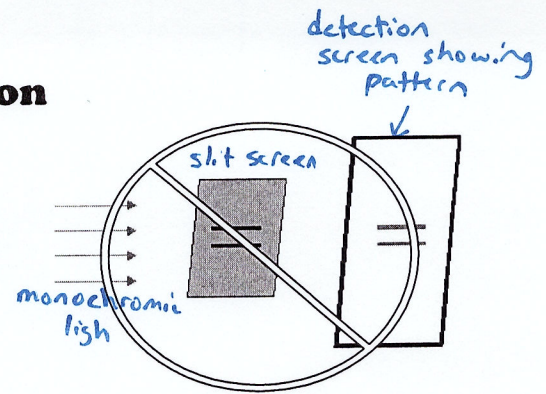 detection
screen showing
pattern
on
slit screen
monochromic
ligh